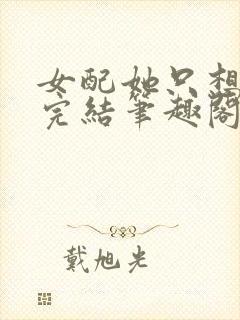 女配她只想
完結筆趣閣
戴旭光